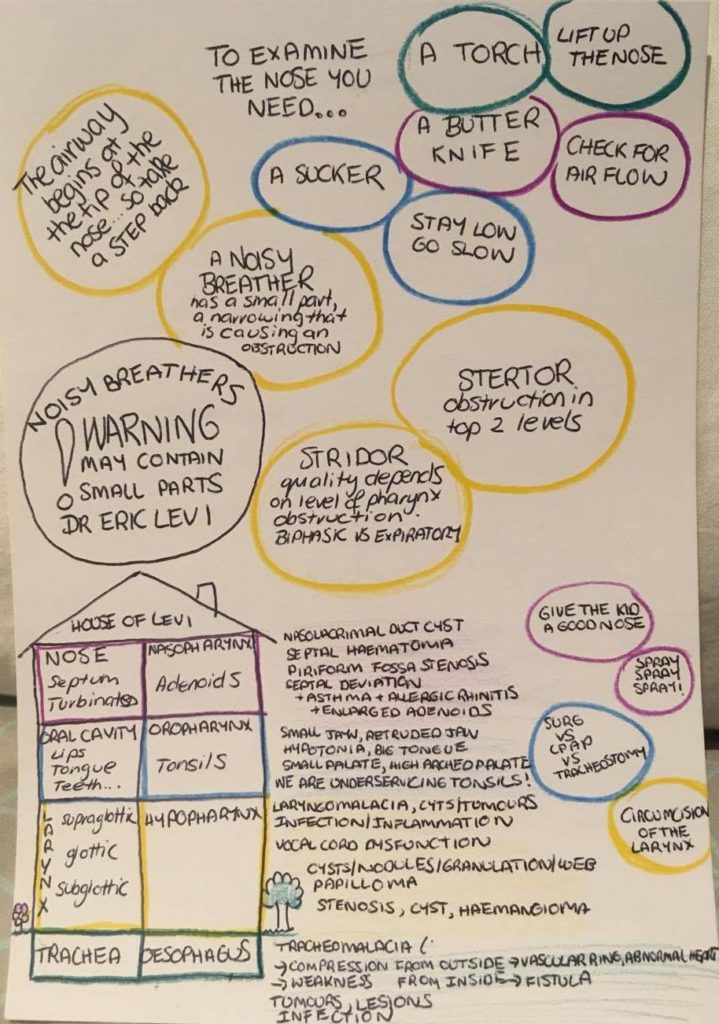 TO EXAMINE
THE NOSE YOU
NEED...
A TORCH
LIFT UP
THE NOSE
A BUTTER
KNIFE
CHECK FOR
AIR FLOW
A SUCKER
STAY LOW
GO SLOW
The airway
begins at
the tip of the
nose... so take
a STEP back
A NOISY
BREATHER
has a small part,
a narrowing that
is causing an
OBSTRUCTION
STERTOR
obstruction in
top 2 levels
NOISY BREATHERS
! WARNING
MAY CONTAIN
SMALL PARTS
DR ERIC LEVI
STRIDOR
quality depends
on level of pharynx
obstruction.
BIPHASIC VS EXPIRATORY
HOUSE OF LEVI
NOSE
Septum
Turbinates
NASOPHARYNX
Adenoids
NASOLACRIMAL DUCT CYST
SEPTAL HAEMATOMA
PIRIFORM FOSSA STENOSIS
SEPTAL DEVIATION
+ASTHMA + ALLERGIC RHINITIS
+ENLARGED ADENOIDS
GIVE THE KID
A GOOD NOSE
SPRAY
SPRAY
SPRAY!
ORAL CAVITY
Lips
Tongue
Teeth...
OROPHARYNX
Tonsils
SMALL JAW, RETRUDED JAW
HYPOTONIA, BIG TONGUE
SMALL PALATE, HIGH ARCHED PALATE
WE ARE UNDERSERVICING TONSILS!
SURG
VS
CPAP
VS
TRACHEOSTOMY
LARYNX
supraglottic
glottic
subglottic
HYPOPHARYNX
LARYNGOMALACIA, CYTS/TUMOURS
INFECTION/INFLAMMATION
VOCAL CORD DYSFUNCTION
CYSTS/NODULES/GRANULATION/WEB
PAPILLOMA
STENOSIS, CYST, HAEMANGIOMA
CIRCUMCISION
OF THE
LARYNX
TRACHEA
OESOPHAGUS
TRACHEOMALACIA (:
→COMPRESSION FROM OUTSIDE →VASCULAR RING, ABNORMAL HEART
→WEAKNESS FROM INSIDE → FISTULA
TUMOURS, LESIONS
INFECTION